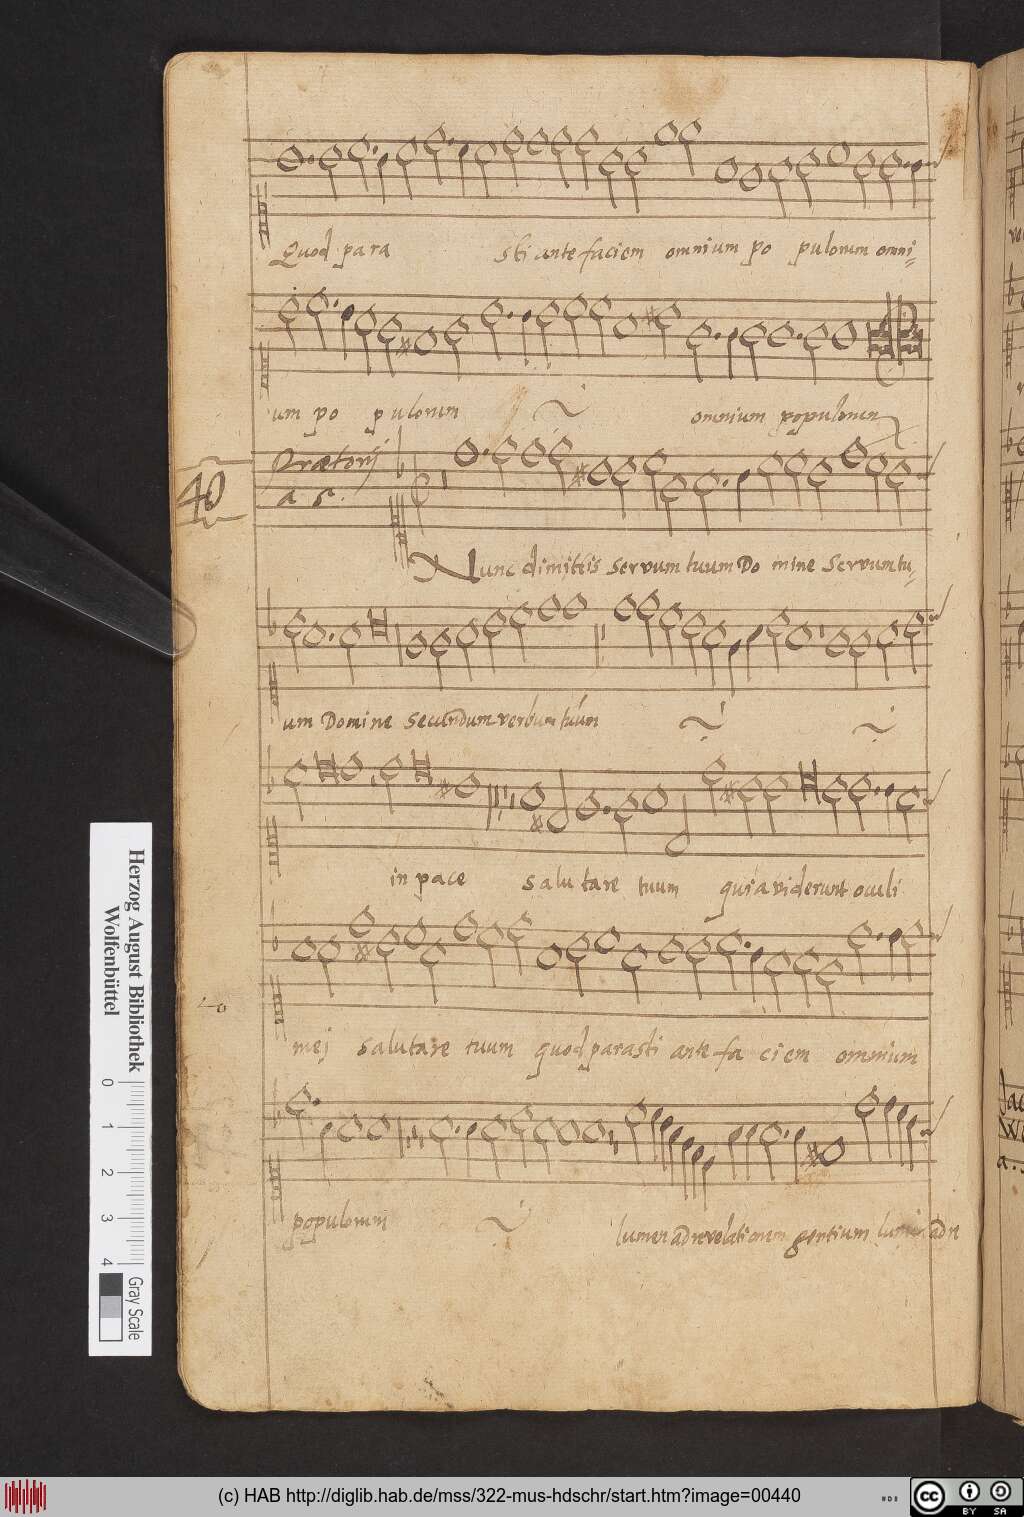 Quod para sti ante faciem omnium po pulorum omni=
um po pulorum omnium populorum
40
Prætorij
a 5.
Nunc dimittis Servum tuum Do mine Servum tu=
um Domine secundum verbum tuum
in pace salu tare tuum quia viderunt oculi
mej salutare tuum quod parasti ante fa ciem omnium
populorum lumen ad revelationem gentium lumen ad re
Herzog August Bibliothek
Wolfenbüttel
0 1 2 3 4
Gray Scale
(c) HAB http://diglib.hab.de/mss/322-mus-hdschr/start.htm?image=00440
cc BY SA